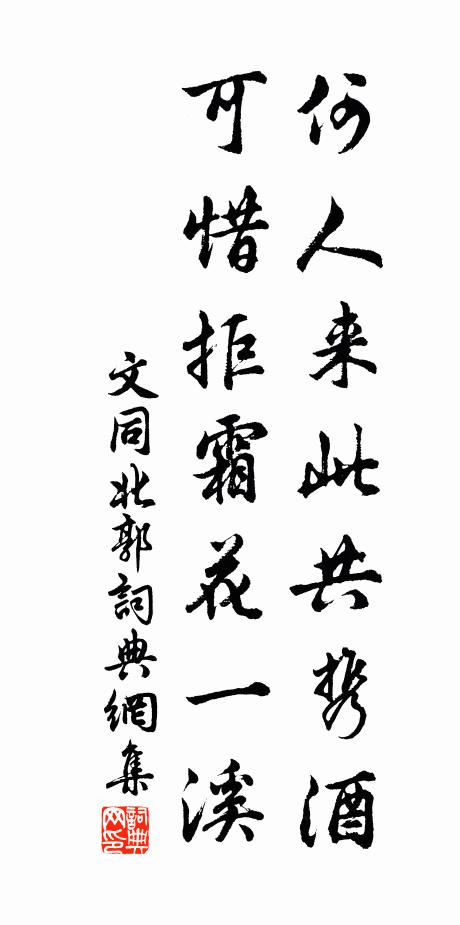 何人来此共携酒
可惜拒霜花一溪
文同北郭詞典網集
詞典网印